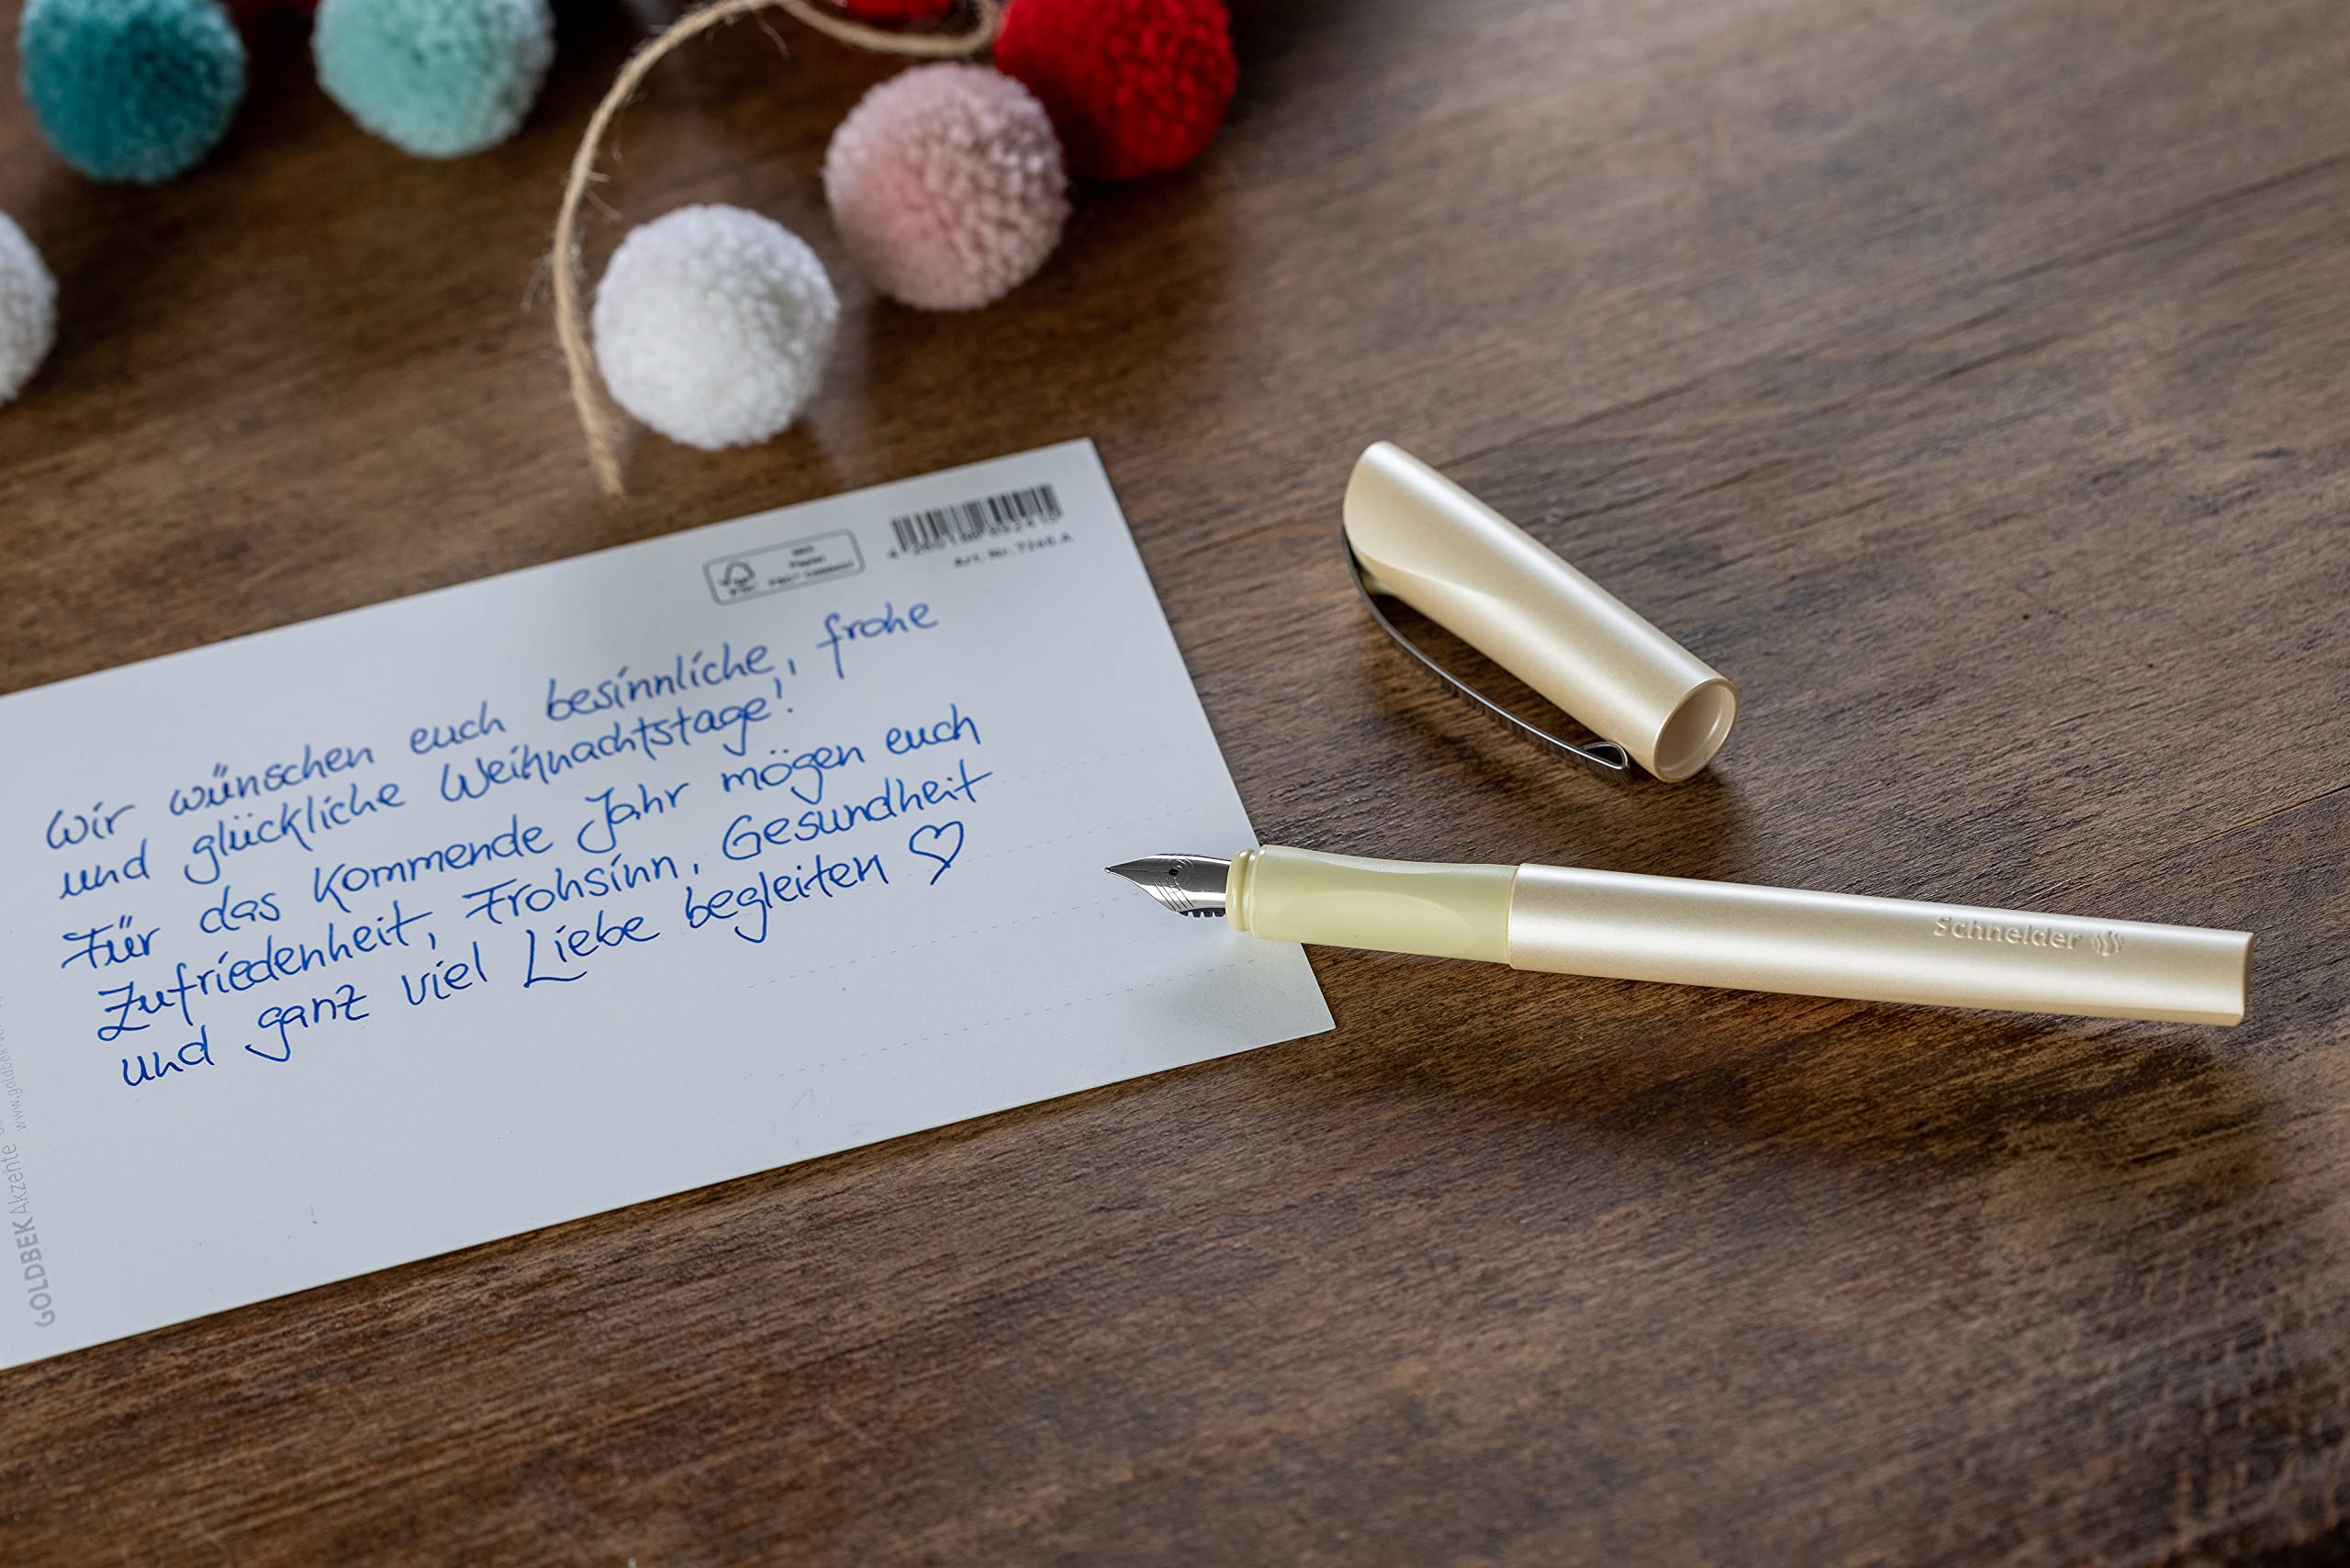 Wir wünschen euch besinnliche, frohe
und glückliche Weihnachtstage!
Für das kommende Jahr mögen euch
Zufriedenheit, Frohsinn, Gesundheit
und ganz viel Liebe begleiten ♡
FSC
Art. Nr.
GOLDBEK Akzente
Schneider